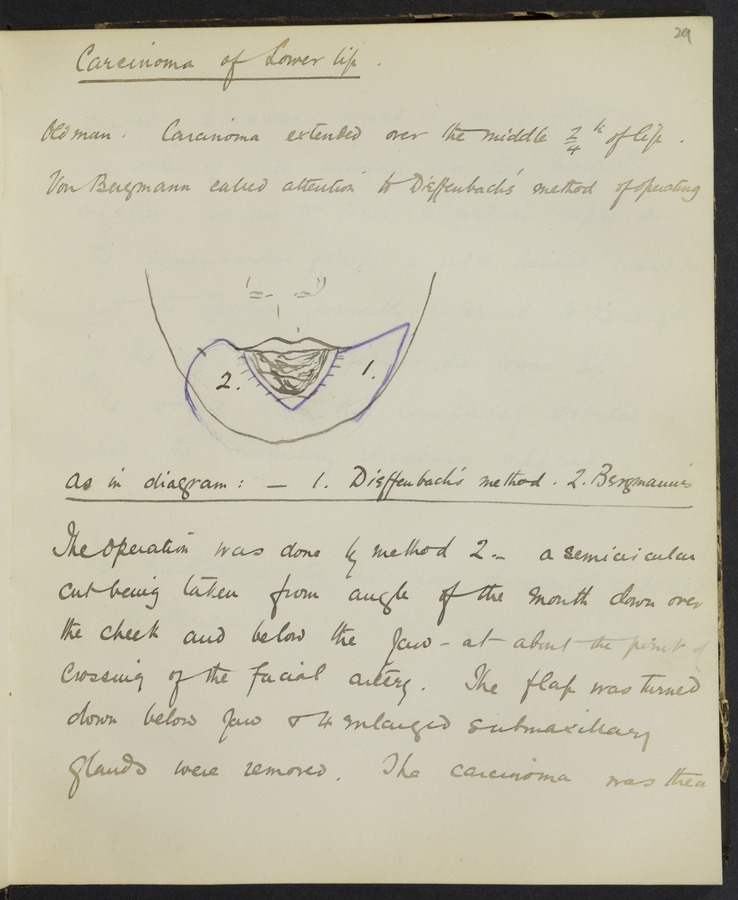 29
Carcinoma of Lower lip.
Old man. Carcinoma extended over the middle 2/4 th of lip.
Von Bergmann called attention to Dieffenbach's method of operating
2.
1.
As in diagram: — 1. Dieffenbach's method. 2. Bergmann's
The operation was done by method 2 – a semicircular
cut being taken from angle of the mouth down over
the cheek and below the jaw – at about the point of
crossing of the facial artery. The flap was turned
down below jaw & 4 enlarged submaxillary
glands were removed. The carcinoma was then